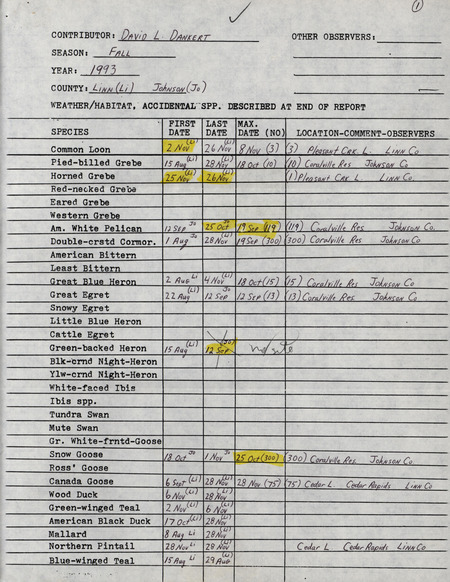 ✓ (1)
CONTRIBUTOR: DAVID L. DANKERT OTHER OBSERVERS:
SEASON: FALL
YEAR: 1993
COUNTY: LINN (Li) JOHNSON (Jo)
WEATHER/HABITAT, ACCIDENTAL SPP. DESCRIBED AT END OF REPORT
SPECIES FIRST DATE LAST DATE MAX. DATE (NO) LOCATION-COMMENT-OBSERVERS
Common Loon 2 Nov (Li) 26 Nov (Li) 8 Nov (3) (3) Pleasant Crk. L. LINN Co
Pied-billed Grebe 15 Aug (Li) 28 Nov (Li) 18 Oct (10) (10) Coralville Res JOHNSON Co
Horned Grebe 25 Nov (Li) 26 Nov (Li) (1) Pleasant Crk. L. LINN Co.
Red-necked Grebe
Eared Grebe
Western Grebe
Am. White Pelican 12 Sep Jo 25 Oct Jo 19 Sep (119) (119) Coralville Res JOHNSON Co.
Double-crstd Cormor. 1 Aug Jo 28 Nov (Li) 19 Sep (300) (300) Coralville Res JOHNSON Co
American Bittern
Least Bittern
Great Blue Heron 2 Aug Li 4 Nov (Li) 18 Oct (15) (15) Coralville Res JOHNSON Co
Great Egret 22 Aug (Li) 12 Sep Jo 12 Sep (13) (13) Coralville Res. JOHNSON Co
Snowy Egret
Little Blue Heron
Cattle Egret
Green-backed Heron 15 Aug (Li) 12 Sep (Jo)
Blk-crnd Night-Heron
Ylw-crnd Night-Heron
White-faced Ibis
Ibis spp.
Tundra Swan
Mute Swan
Gr. White-frntd-Goose
Snow Goose 18 Oct Jo 1 Nov Jo 25 Oct (300) (300) Coralville Res. JOHNSON Co
Ross' Goose
Canada Goose 6 Sept (Li) 28 Nov (Li) 28 Nov (75) (75) Cedar L. Cedar Rapids LINN Co
Wood Duck 6 Nov (Li) 28 Nov (Li)
Green-winged Teal 2 Nov (Li) 6 Nov (Li)
American Black Duck 17 Oct (Li) 28 Nov (Li)
Mallard 8 Aug Li 28 Nov (Li)
Northern Pintail 28 Nov Li 28 Nov (Li) Cedar L Cedar Rapids LINN Co
Blue-winged Teal 15 Aug Li 29 Aug (Li)